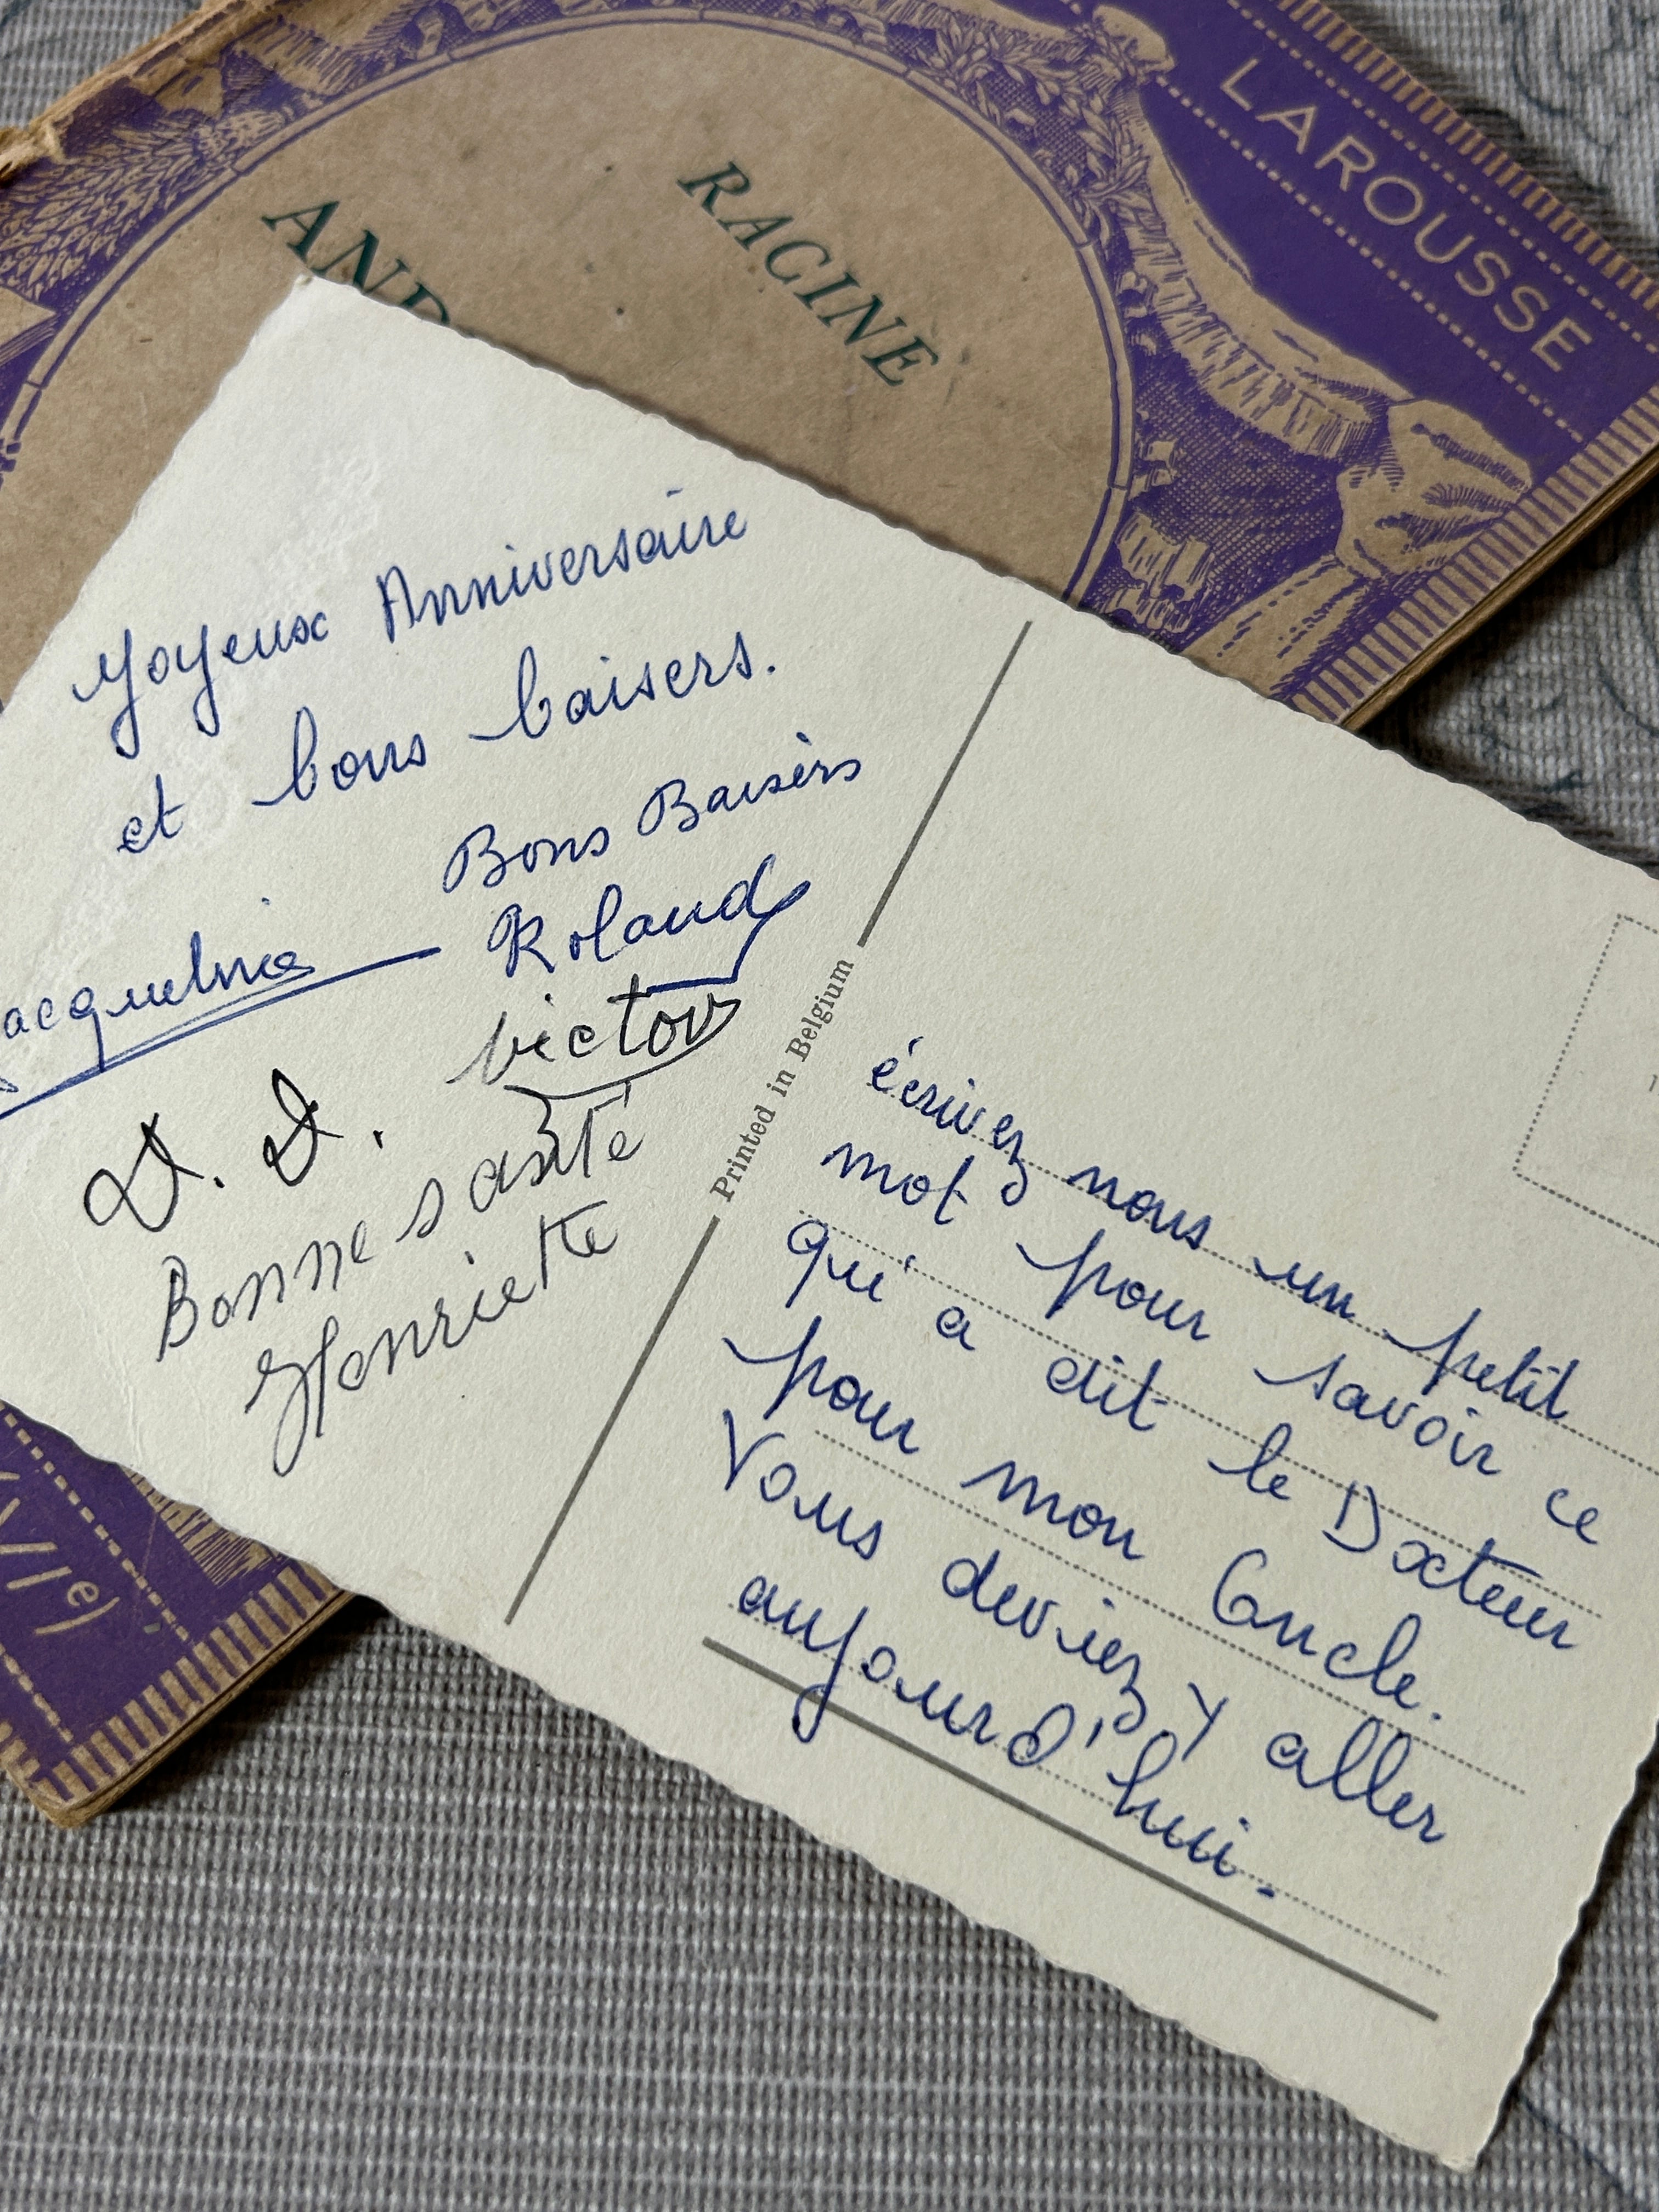 LAROUSSE
RACINE
AND
Yoyeux Anniversaire
et bons baisers.
Bons Baisers
Roland
acqueline
Victor
D. D.
Bonne santé
Henriette
Printed in Belgium
écrivez nous un petit
mot pour savoir ce
qu'a dit le Docteur
pour mon Oncle.
Vous deviez y aller
aujourd'hui.